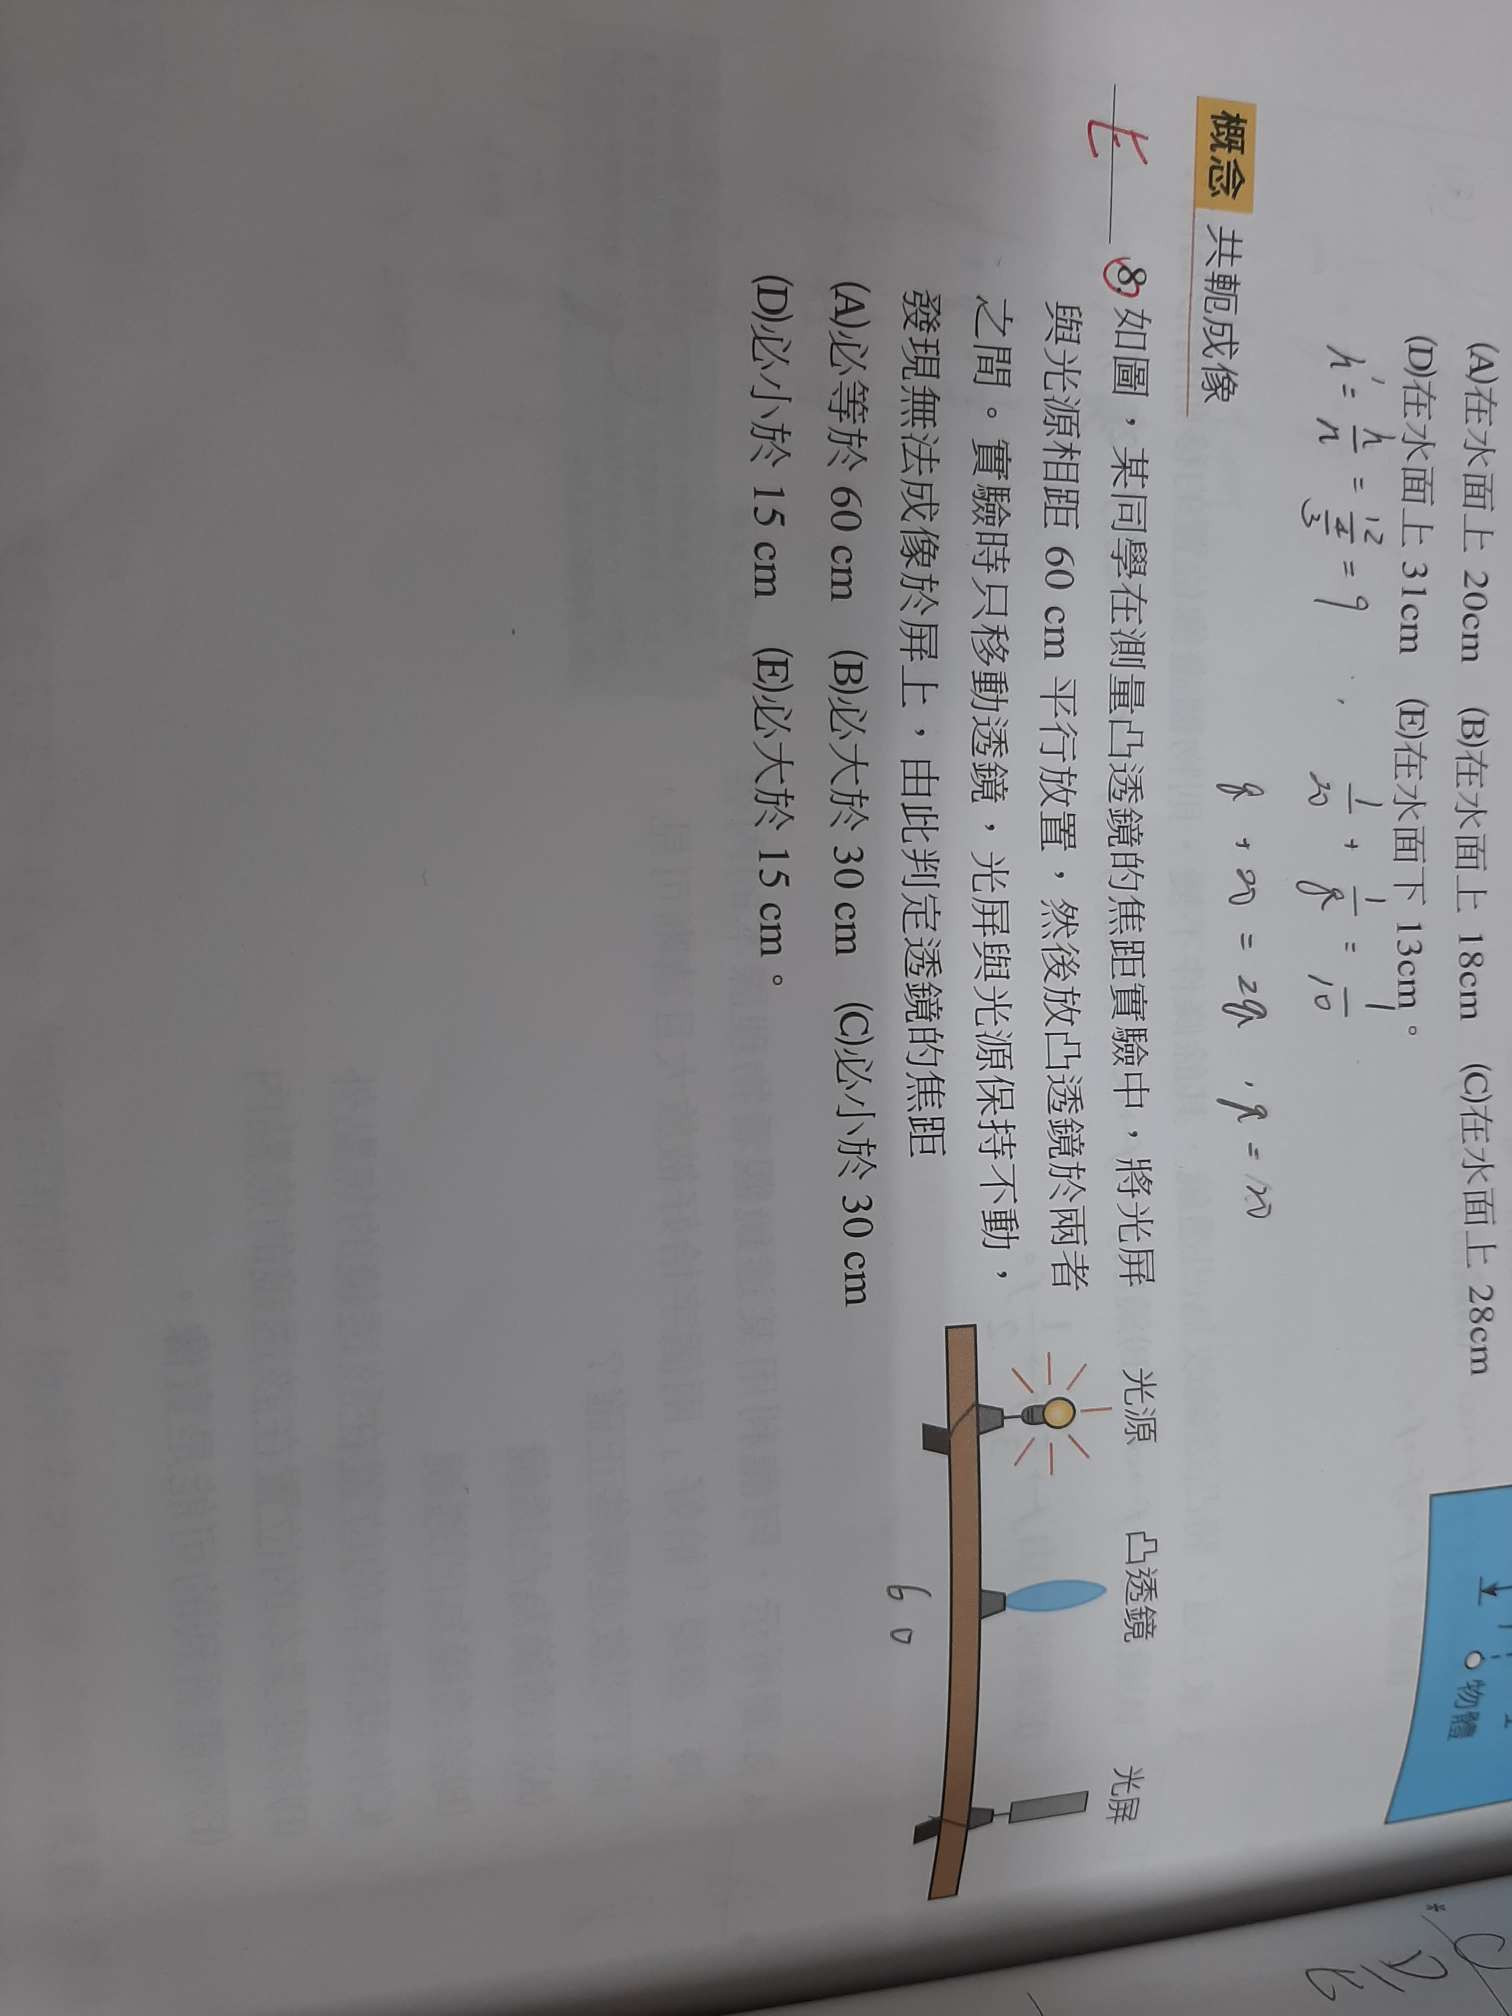 (A)在水面上 20cm (B)在水面上 18cm (C)在水面上 28cm
(D)在水面上 31cm (E)在水面下 13cm。
物體
h' = h/n = 12/(4/3) = 9
1/20 + 1/q = 1/10
q + 20 = 2q , q = 20
概念 共軛成像
E 8. 如圖，某同學在測量凸透鏡的焦距實驗中，將光屏
與光源相距 60 cm 平行放置，然後放凸透鏡於兩者
之間。實驗時只移動透鏡，光屏與光源保持不動，
發現無法成像於屏上，由此判定透鏡的焦距
(A)必等於 60 cm (B)必大於 30 cm (C)必小於 30 cm
(D)必小於 15 cm (E)必大於 15 cm。
光源 凸透鏡 光屏
60